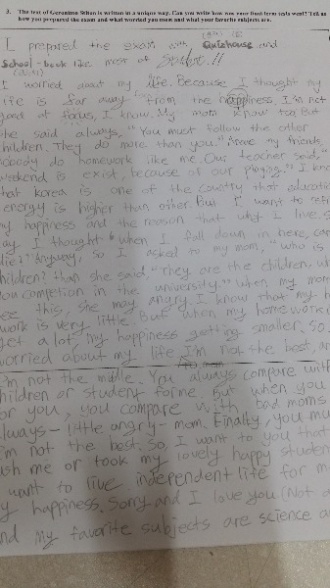 3. The test of Geronimo Stilton is written in a unique way. Can you write how was your final term tests went? Tell us
how you prepared the exam and what worried you most and what your favorite subjects are.
I prepared the exam with Quizehouse and
School-book like most of
I worried about my life. Because I thought my
life is far away from the happiness. I'm not
good at focus, I know. My mom know too. But
she said always, "You must follow the other
children. They do more than you." my friends,
nobody do homework like me. Our teacher said, "
weekend is exist, because of our" I know
that korea is one of the country that education
energy is higher than other. But I want to
my happiness and the reason that I live.
day I thought "when I fall down in here, can
die?" Anyway, so I asked to my mom, "who is
children? than she said, "they are the children,
competion in the university." when my mom
see this, she may angry. I know that my
work is very little. But when my homework
get a lot, my happiness getting smaller. So
worried about my life. I'm not the best, an
I'm not the middle. You always compare with
children or student for me. But when you
or you, you compare with bad moms
always - little angry - mom. Finally, you mu
I'm not the best. So, I want to you that
me or took my lovely happy studen
want to live independent life for m
my happiness. Sorry and I love you (Not a
and my favorite subjects are science a